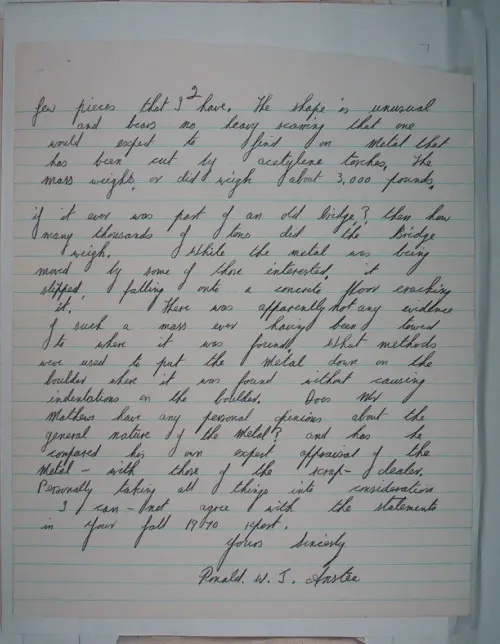 2
few pieces that I have. The shape is unusual
and bears no heavy scaring that one
would expect to find on metal that
has been cut by acetylene torches. The
mass weighs, or did weigh about 3,000 pounds.
if it ever was part of an old bridge? then how
many thousands of tons did the Bridge
weigh. While the metal was being
moved by some of those interested, it
slipped, falling onto a concrete floor cracking
it. There was apparently not any evidence
of such a mass ever having been towed
to where it was found, what methods
were used to put the metal down on the
boulder where it was found without causing
indentations on the boulder. Does Mr
Mathews have any personal opinions about the
general nature of the metal? and has he
compared his own expert appraisal of the
metal - with those of the scrap - dealer.
Personally taking all things into consideration
I can - not agree with the statements
in your fall 1970 report.
Yours sincerly
Ronald. W. J. Anstee